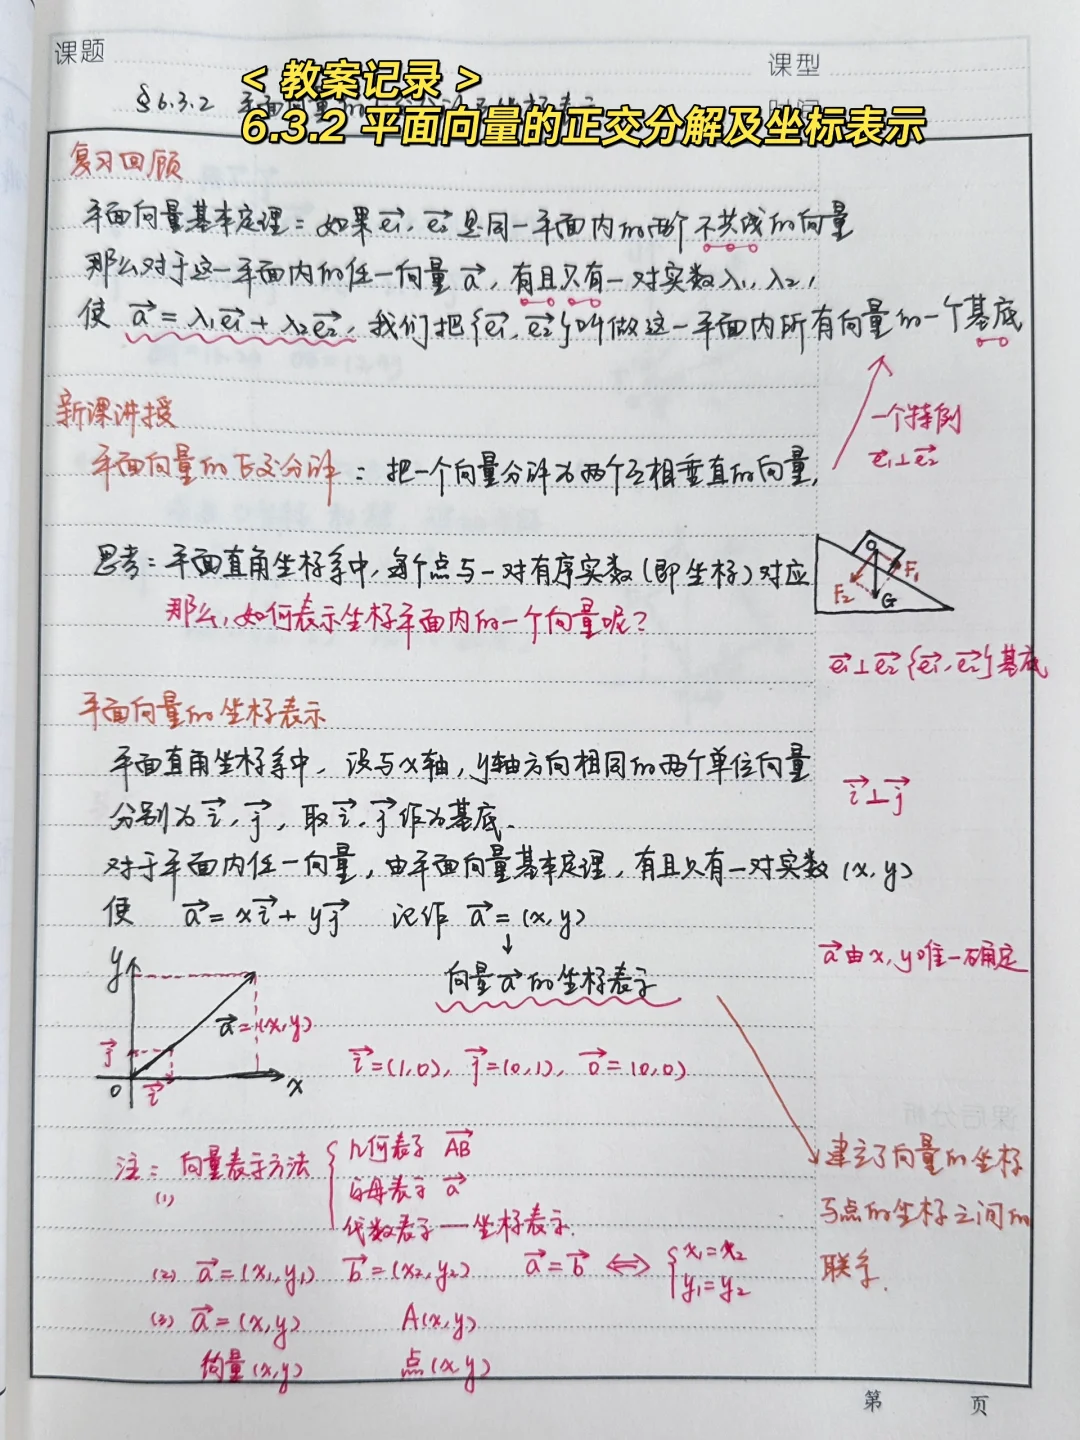 课题
课型
< 教案记录 >
§6.3.2
6.3.2 平面向量的正交分解及坐标表示
复习回顾
平面向量基本定理：如果e₁⃗, e₂⃗ 是同一平面内的两个不共线的向量
那么对于这一平面内的任一向量 a⃗, 有且只有一对实数λ₁, λ₂,
使 a⃗ = λ₁e₁⃗ + λ₂e₂⃗, 我们把{e₁⃗, e₂⃗}叫做这一平面内所有向量的一个基底
一个特例
e₁⃗⊥e₂⃗
新课讲授
平面向量的正交分解：把一个向量分解为两个互相垂直的向量,
思考：平面直角坐标系中, 每个点与一对有序实数(即坐标)对应
那么, 如何表示坐标平面内的一个向量呢?
O F₁
F₂ G
e₁⃗⊥e₂⃗ {e₁⃗, e₂⃗}基底
平面向量的坐标表示
平面直角坐标系中, 设与x轴, y轴方向相同的两个单位向量
分别为 i⃗, j⃗, 取 i⃗, j⃗ 作为基底.
i⃗⊥j⃗
对于平面内任一向量, 由平面向量基本定理, 有且只有一对实数 (x, y)
使 a⃗ = xi⃗ + yj⃗ 记作 a⃗ = (x, y)
a⃗由x, y唯一确定
↓
向量a⃗的坐标表示
y
a⃗=(x,y)
j⃗
O i⃗ x
i⃗=(1,0), j⃗=(0,1), 0⃗=(0,0)
建立了向量的坐标
与点的坐标之间的
联系.
注： 向量表示方法
(1)
几何表示 AB⃗
字母表示 a⃗
代数表示 — 坐标表示.
(2) a⃗=(x₁,y₁) b⃗=(x₂,y₂) a⃗=b⃗ ⇔ { x₁=x₂
y₁=y₂
(3) a⃗=(x,y) A(x,y)
向量(x,y) 点(x,y)
第 页